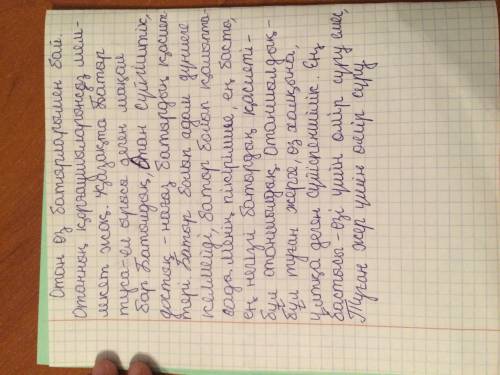 Отан өз батырларымен бай.
Отанның қорғаушыларынсыз мем-
лекет жоқ. Қазақта Батыр
туса-ел ырысы деген мақал
бар Батылдық, Отан сүйгіштік,
достық - нағыз батырдың қасиет-
тері. Батыр болып адам дүниеге
келмейді, батыр болып қалыпта-
сады. Менің пікірімше, ең басты,
ең негізгі батырдың қасиеті-
бұл отаншылдық. Отаншылдық-
бұл туған жерге, өз халқына,
ұлтқа деген сүйіспеншілік. Ең
бастысы - өзі үшін өмір сүру емес,
Туған жер үшін өмір сүру